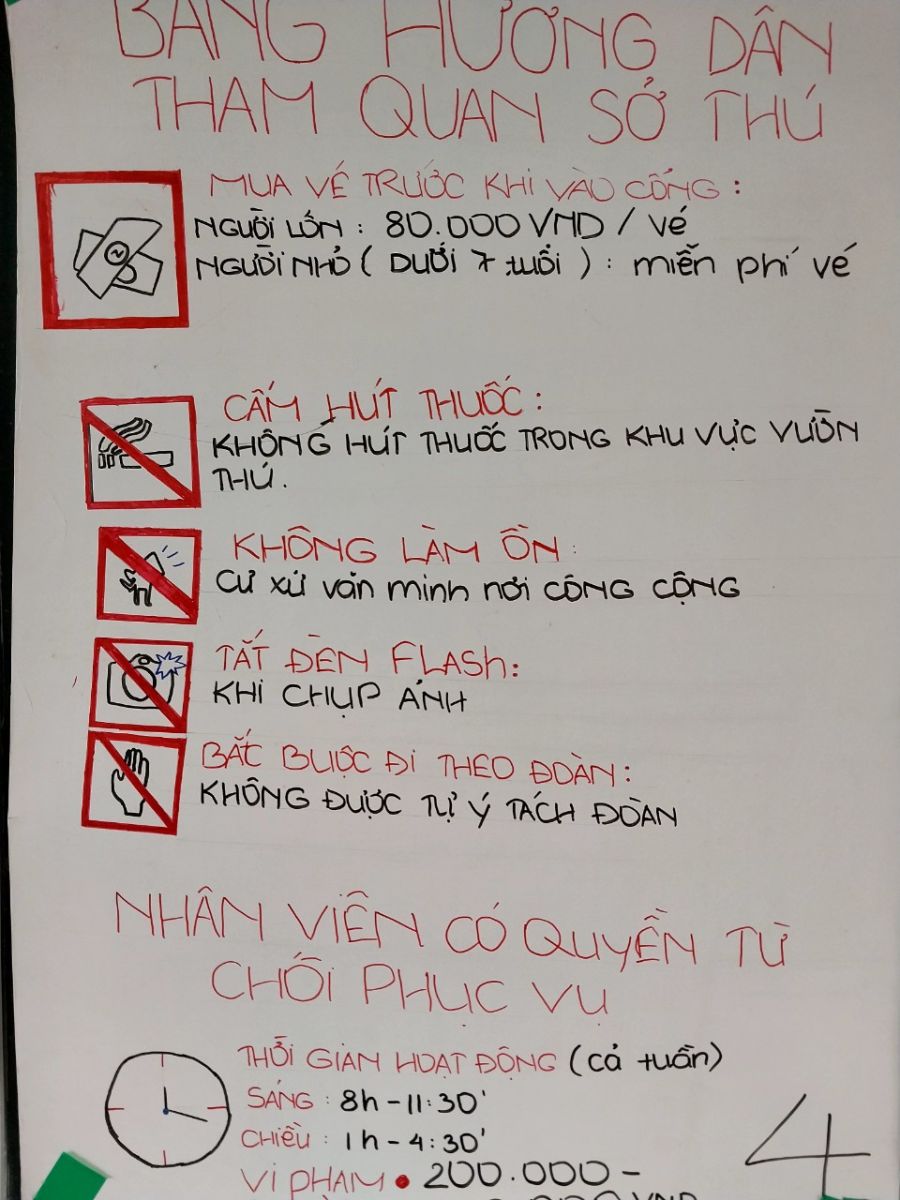 BẢNG HƯỚNG DẪN
THAM QUAN SỞ THÚ
MUA VÉ TRƯỚC KHI VÀO CỔNG:
NGƯỜI LỚN: 80.000 VND / vé
NGƯỜI NHỎ (DƯỚI 7 tuổi): miễn phí vé
CẤM HÚT THUỐC:
KHÔNG HÚT THUỐC TRONG KHU VỰC VƯỜN
THÚ.
KHÔNG LÀM ỒN:
Cư xử văn minh nơi CÔNG CỘNG
TẮT ĐÈN FLASH:
KHI CHỤP ẢNH
BẮT BUỘC ĐI THEO ĐOÀN:
KHÔNG ĐƯỢC TỰ Ý TÁCH ĐOÀN
NHÂN VIÊN CÓ QUYỀN TỪ
CHỐI PHỤC VỤ
THỜI GIAN HOẠT ĐỘNG (cả tuần)
SÁNG: 8h - 11:30'
CHIỀU: 1h - 4:30'
VI PHẠM • 200.000 -
VND
4